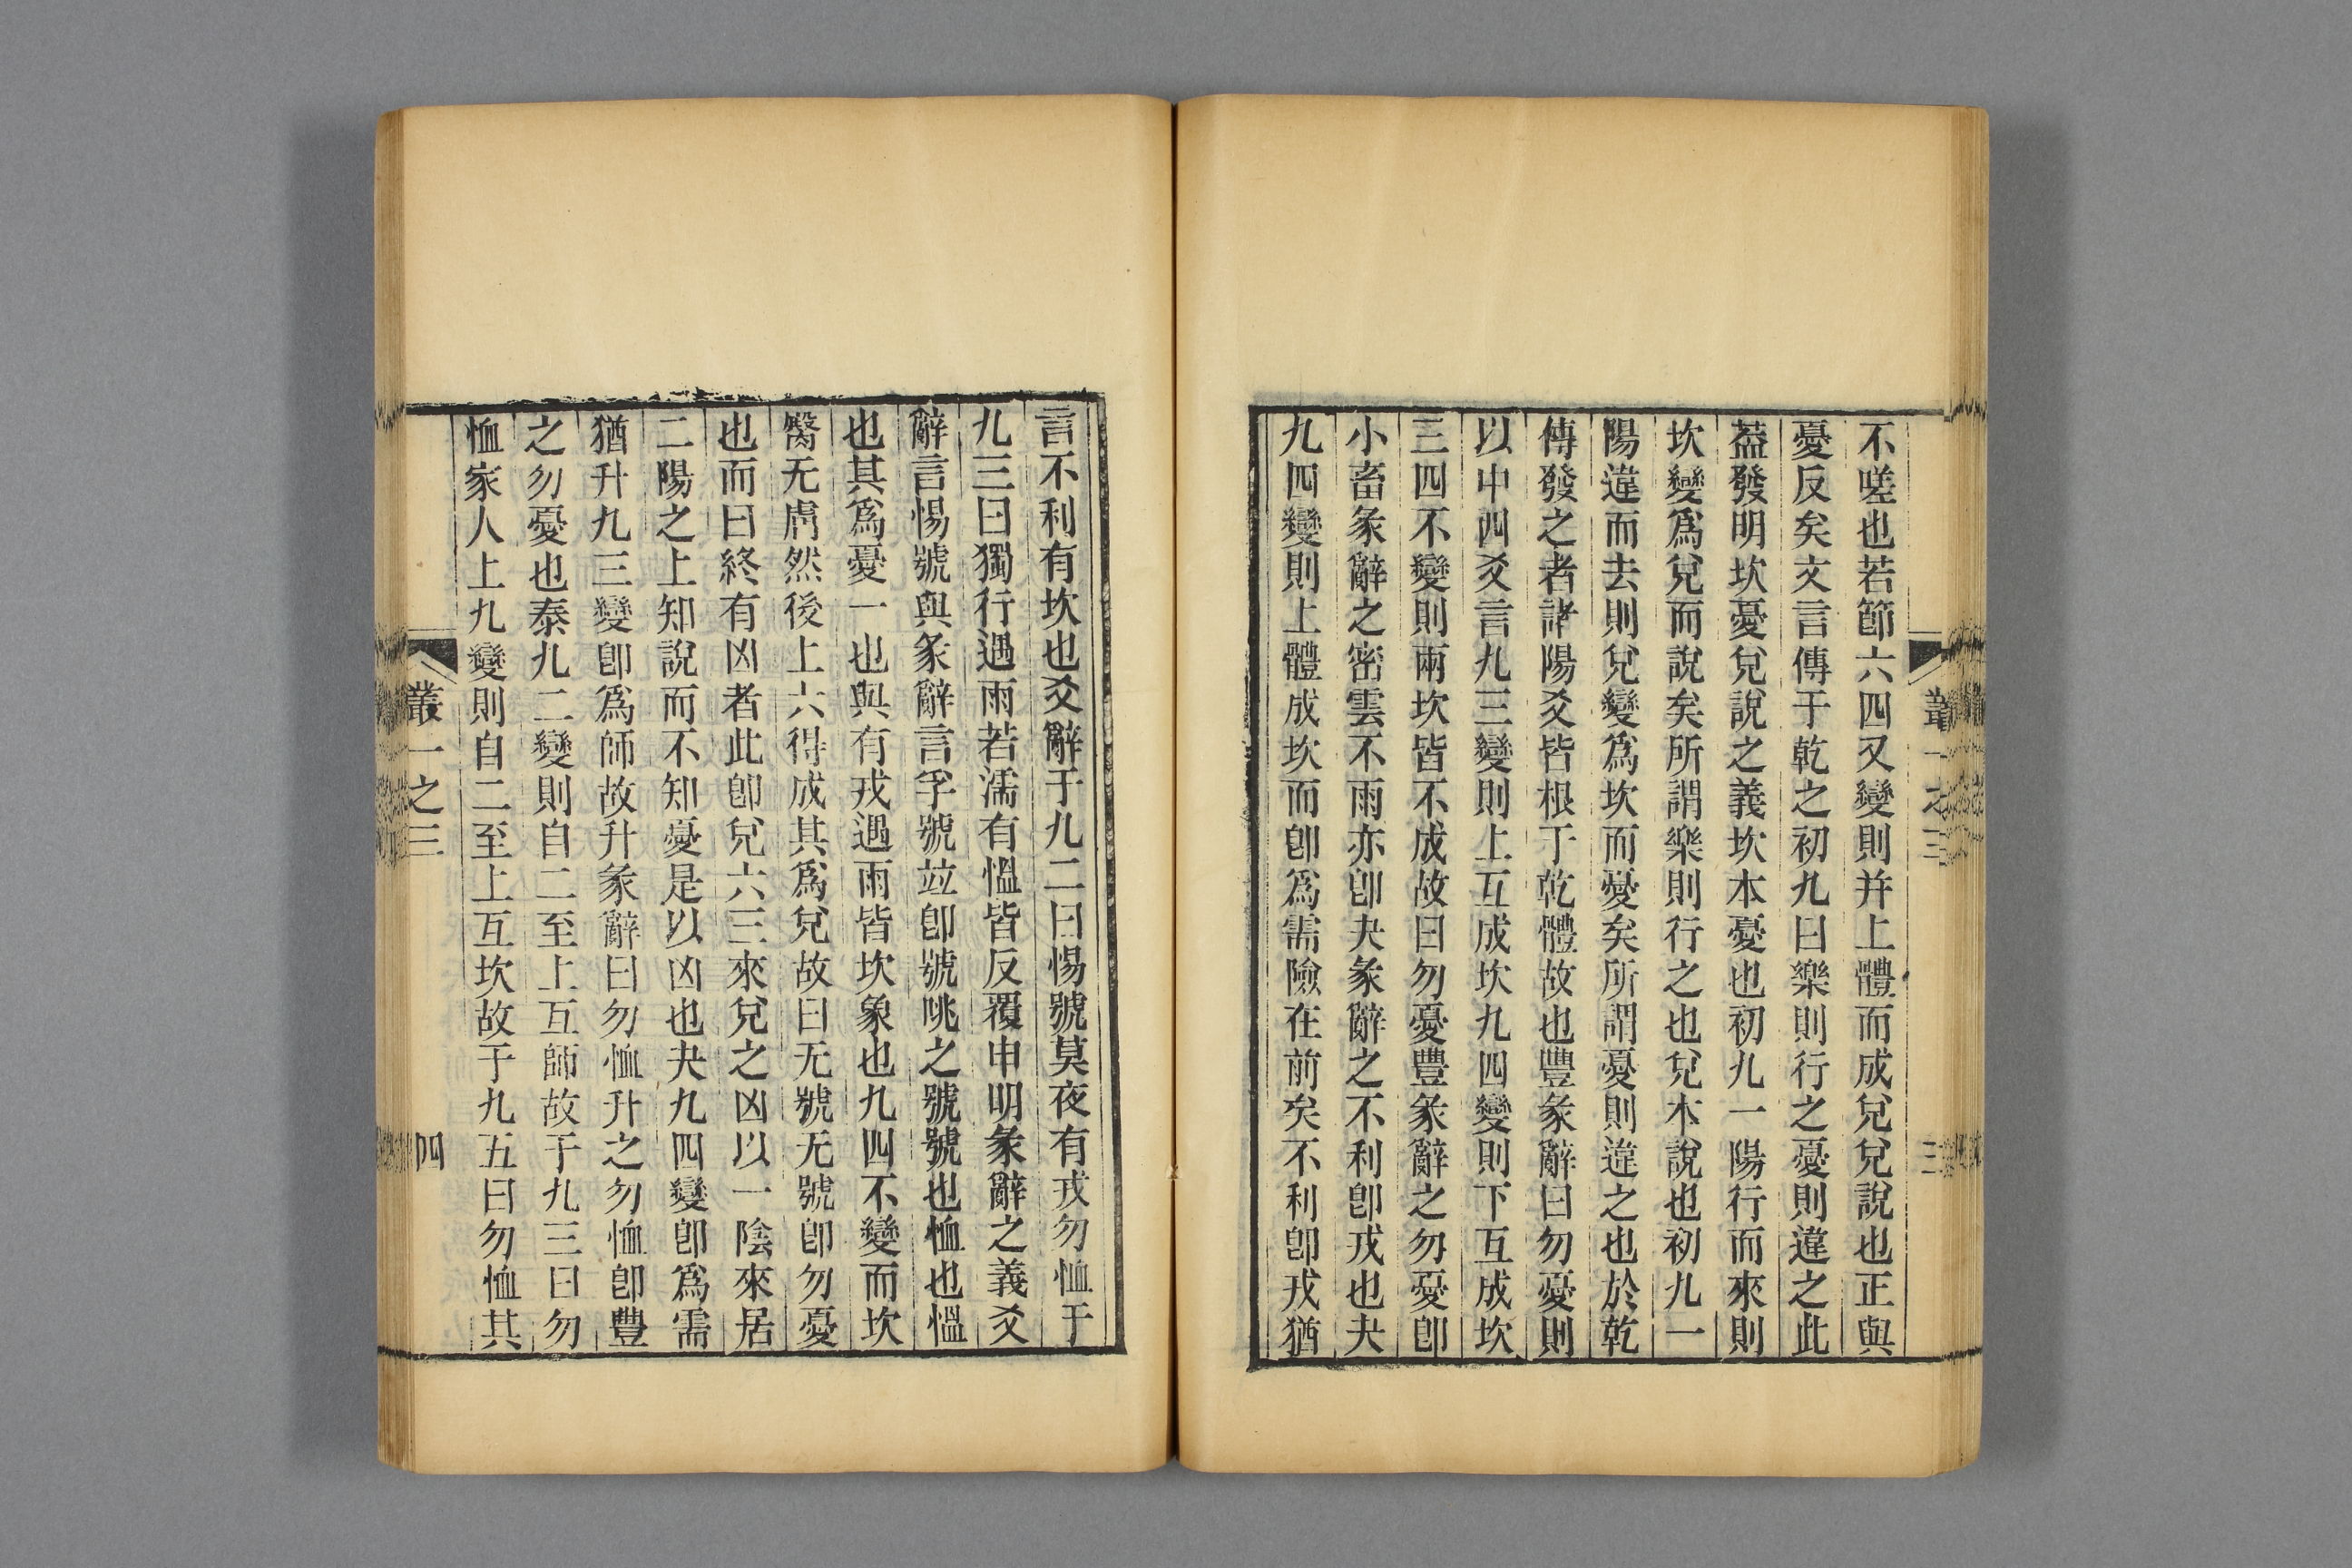 叢一之三
三
不嗟也若節六四又變則并上體而成兌兌說也正與
憂反矣文言傳于乾之初九曰樂則行之憂則違之此
葢發明坎憂兌說之義坎本憂也初九一陽行而來則
坎變爲兌而說矣所謂樂則行之也兌本說也初九一
陽違而去則兌變爲坎而憂矣所謂憂則違之也於乾
傳發之者諸陽爻皆根于乾體故也豐彖辭曰勿憂則
以中四爻言九三變則上互成坎九四變則下互成坎
三四不變則兩坎皆不成故曰勿憂豐彖辭之勿憂卽
小畜彖辭之密雲不雨亦卽夬彖辭之不利卽戎也夬
九四變則上體成坎而卽爲需險在前矣不利卽戎猶
言不利有坎也爻辭于九二曰惕號莫夜有戎勿恤于
九三曰獨行遇雨若濡有慍皆反覆申明彖辭之義爻
辭言惕號與彖辭言孚號竝卽號咷之號號也恤也慍
也其爲憂一也與有戎遇雨皆坎象也九四不變而坎
臀无膚然後上六得成其爲兌故曰无號无號卽勿憂
也而曰終有凶者此卽兌六三來兌之凶以一陰來居
二陽之上知說而不知憂是以凶也夬九四變卽爲需
猶升九三變卽爲師故升彖辭曰勿恤升之勿恤卽豐
之勿憂也泰九二變則自二至上互師故于九三曰勿
恤家人上九變則自二至上互坎故于九五曰勿恤其
叢一之三
四